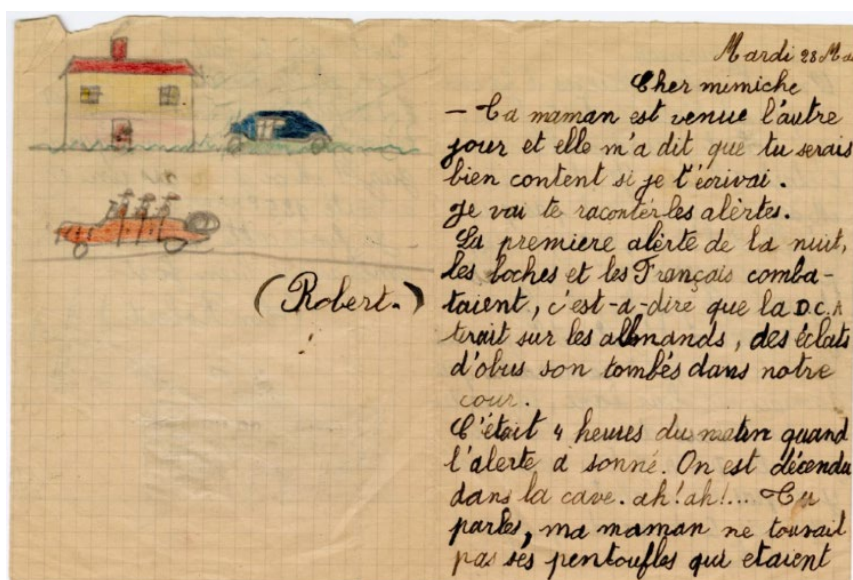 Mardi 28 Ma
Cher mimiche
– Ta maman est venue l'autre
jour et elle m'a dit que tu serais
bien content si je t'écrivai.
Je vai te raconter les alèrtes.
La premiere alèrte de la nuit,
les boches et les Français comba-
taient, c'est-a-dire que la D.C.A
tirait sur les allmands, des éclats
d'obus son tombés dans notre
cour.
C'était 4 heures du matin quand
l'alerte a sonné. On est décendu
dans la cave. ah! ah!... Tu
parles, ma maman ne touvait
pas ses pentoufles qui etaient
(Robert.)